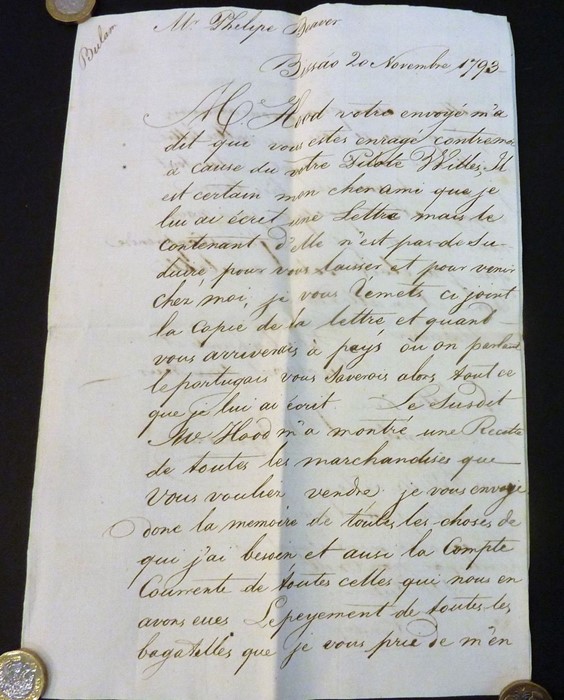 Mr Phelipe Beaver
Bulam
Bissáo 20 Novembre 1793
M. Hood votre envoyé m'a
dit que vous estes enragé contre moi
a cause du votre Pilote Willes, Il
est certain mon cher ami que je
lui ai écrit une Lettre mais le
contenant d'elle n'est pas de Su-
duire pour vous laisser et pour venir
chez moi, je vous remets ci joint
la Copie de la lettre et quand
vous arriverais à pays où on parlait
le portugais vous saverois alors tout ce
que je lui ai écrit. Le Susdit
Mr Hood m'a montré une Recette
de toutes les marchandises que
vous vouliez vendre, je vous envoye
donc la memoire de toutes les choses de
qui j'ai besoin et ausi la Compte
Courrente de toutes celles qui nous en
avons eues Le peyement de toutes les
bagatelles que je vous prie de m'en